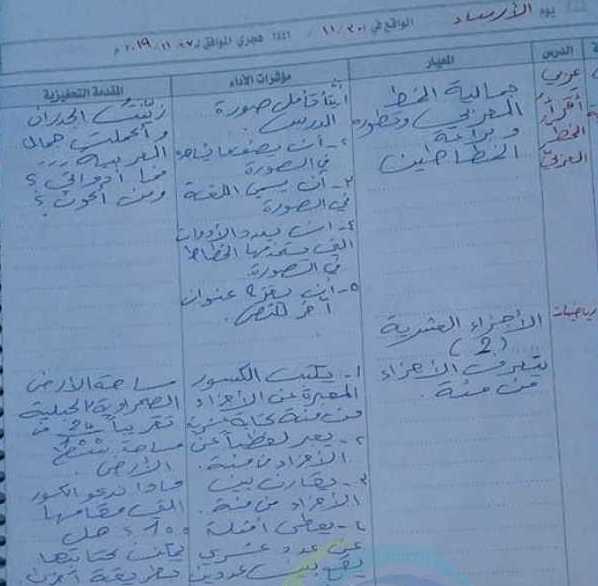 يوم الأربعاء الواقع في ١١/٣٠ ١٤٤١ هجري الموافق لـ ٢٠١٩/١١/٢٧ م
الدرس
المعيار
مؤشرات الأداء
المقدمة التحفيزية
عربي
أقرأ
الخط
العربي
جمالية الخط
العربي وتطوره
وبراعة
الخطاطين
أن يتأمل صورة
الدرس.
٢- أن يصف ما يشاهده
في الصورة
٣- أن يسمي اللغة
في الصورة
٤- أن يعدد الأدوات
التي يستخدمها الخطاط
في الصورة
٥- أن يقترح عنوان
آخر للنص.
زينت الجدران
وأكملت جمال
العربية ...
فما أدواتي؟
ومن أكون؟
رياضيات
الأجزاء العشرية
(2)
يتعرف الأجزاء
من مئة.
١- يكتب الكسور
المعبرة عن الأجزاء
من مئة كتابة عشرية
٢- يعبر لفظياً عن
الأجزاء من مئة.
٣- يقارن بين
الأجزاء من مئة.
٤- يعطي أمثلة
عن عدد عشري
يقع بين عددين
مساحة الأرض
الصحراوية الجبلية
تقريباً من
مساحة سطح
الأرض.
ماذا ندعو الكسور
التي مقامها
١٠٠؟ هل
يمكن كتابتها
بطريقة أخرى